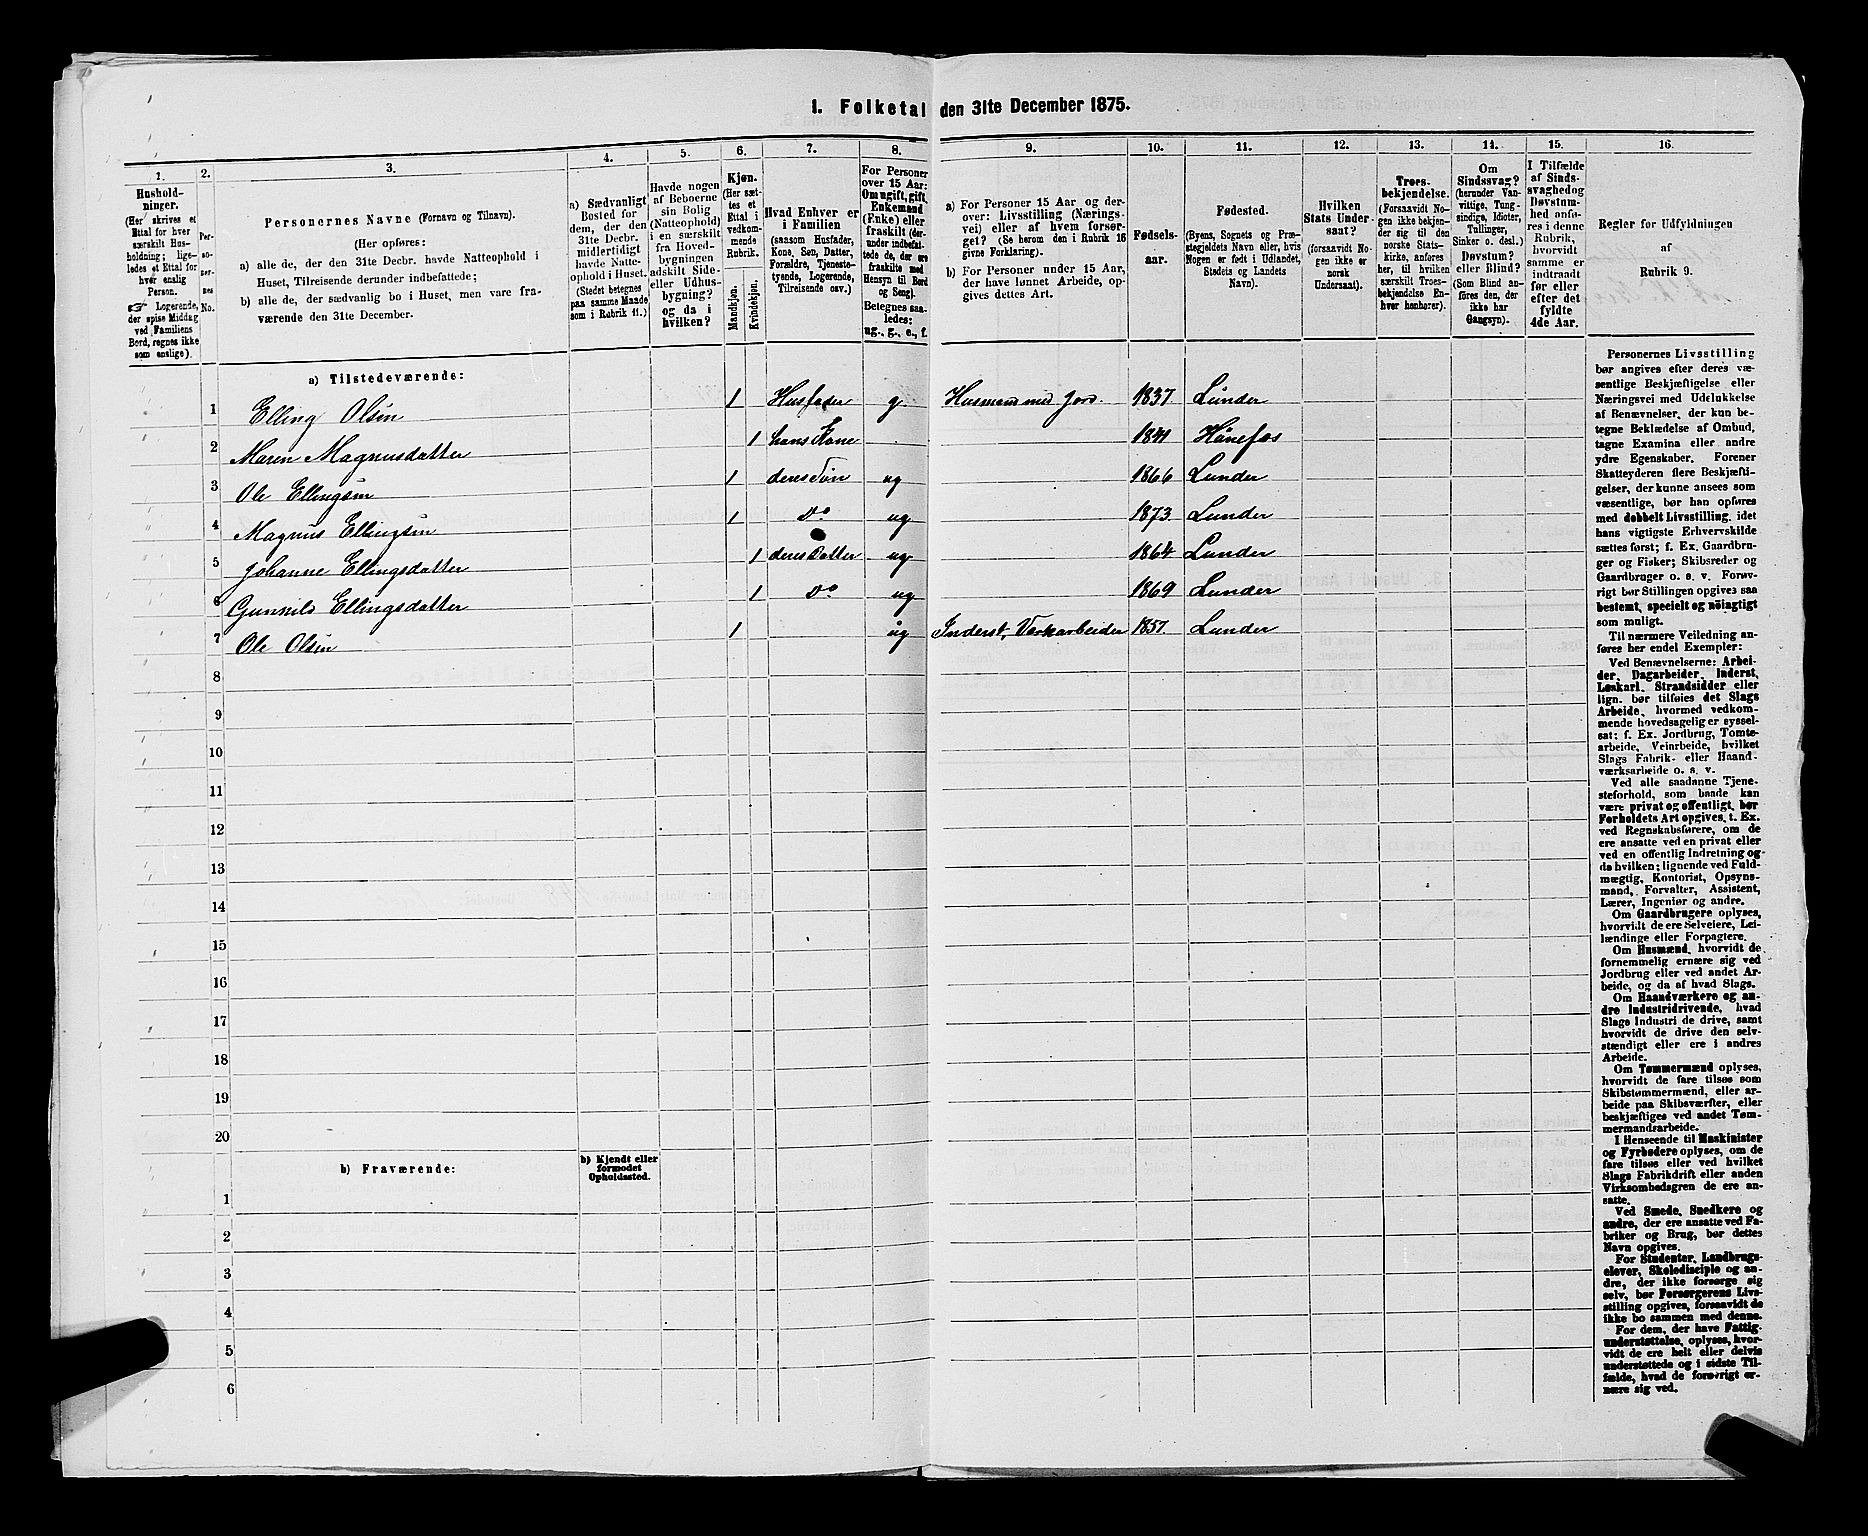 1. Folketal den 31te December 1875.
1. 2. 3. 4. 5. 6. 7. 8. 9. 10. 11. 12. 13. 14. 15. 16.
Hushold-
ninger.
(Her skrives et
Ettal for hver
særskilt Hus-
holdning; lige-
ledes et Ettal for
hver enslig
Person.
☞ Logerende,
der spise Middag
ved Familiens
Bord, regnes ikke
som enslige).
Per-
so-
ner-
nes
No.
Personernes Navne (Fornavn og Tilnavn).
(Her opføres:
a) alle de, der den 31te Decbr. havde Natteophold i
Huset, Tilreisende derunder indbefattede;
b) alle de, der sædvanlig bo i Huset, men vare fra-
værende den 31te December.
a) Sædvanligt
Bosted for
dem, der den
31te Decbr.
midlertidigt
havde Natte-
ophold i Huset.
(Stedet betegnes
paa samme Maade
som i Rubrik 11.)
Havde nogen
af Beboerne
sin Bolig
(Natteophold)
i en særskilt
fra Hoved-
bygningen
adskilt Side-
eller Udhus-
bygning?
og da i
hvilken?
Kjøn.
(Her sæt-
tes et
Ettal i
vedkom-
mende
Rubrik.
Mandkjøn.
Kvindekjøn.
Hvad Enhver er
i Familien
(saasom Husfader,
Kone, Søn, Datter,
Forældre, Tjeneste-
tyende, Logerende,
Tilreisende osv.)
For Personer
over 15 Aar:
Om ugift, gift,
Enkemand
(Enke) eller
fraskilt (der-
under indbefat-
tede de, der ere
fraskilte med
Hensyn til Bord
og Seng).
Betegnes saa-
ledes:
ug., g., e., f.
a) For Personer 15 Aar og der-
over: Livsstilling (Nærings-
vei) eller af hvem forsør-
get? (Se herom den i Rubrik 16
givne Forklaring).
b) For Personer under 15 Aar,
der have lønnet Arbeide, op-
gives dettes Art.
Fødsels-
aar.
Fødested.
(Byens, Sognets og Præ-
stegjeldets Navn eller, hvis
Nogen er født i Udlandet,
Stedets og Landets
Navn).
Hvilken
Stats Under-
saat?
(forsaavidt No-
gen ikke er
norsk
Undersaat).
Troes-
bekjendelse.
(Forsaavidt No-
gen ikke bekjen-
der sig til den
norske Stats-
kirke, anføres
her, til hvilken
særskilt Troes-
bekjendelse En-
hver henhører).
Om
Sindssvag?
(herunder Van-
vittige, Tung-
sindige, Idioter,
Tullinger,
Sinker o. desl.)
Døvstum?
eller Blind?
(Som Blind an-
føres den, der
ikke har
Gangsyn).
I Tilfælde
af Sinds-
svaghed og
Døvstum-
hed anfø-
res i denne
Rubrik,
hvorvidt
samme er
indtraadt
før eller
efter det
fyldte
4de Aar.
Regler for Udfyldningen
af
Rubrik 9.
a) Tilstedeværende:
1 Elling Olsen 1 Husfader g Husmand med Jord 1837 Lunder
2 Maren Magnusdatter 1 hans Kone 1841 Hönefos
3 Ole Ellingsen 1 deres Søn ug 1866 Lunder
4 Magnus Ellingsen 1 Do ug 1873 Lunder
5 Johanne Ellingsdatter 1 deres Datter ug 1864 Lunder
6 Gunnild Ellingsdatter 1 Do ug 1869 Lunder
7 Ole Olsen 1 ug Inderst, 1857 Lunder
8
9
10
11
12
13
14
15
16
17
18
19
20
b) Fraværende:
b) Kjendt eller
formodet
Opholdssted.
1
2
3
4
5
6
Personernes Livsstilling
bør angives efter deres væ-
sentlige Beskjæftigelse eller
Næringsvei med Udelukkelse
af Benævnelser, der kun be-
tegne Beklædelse af Ombud,
tagne Examina eller andre
ydre Egenskaber. Forener
Skatteyderen flere Beskjæfti-
gelser, der kunne ansees som
væsentlige, bør han opføres
med dobbelt Livsstilling, idet
hans vigtigste Erhvervskilde
sættes først; f. Ex. Gaardbru-
ger og Fisker; Skibsreder og
Gaardbruger o. s. v. Forøv-
rigt bør Stillingen opgives saa
bestemt, specielt og nöiagtigt
som muligt.
Til nærmere Veiledning an-
føres her endel Exempler:
Ved Benævnelserne: Arbei-
der, Dagarbeider, Inderst,
Løskarl, Strandsidder eller
lign. bør tilføies det Slags
Arbeide, hvormed vedkom-
mende hovedsagelig er syssel-
sat; f. Ex. Jordbrug, Tomte-
arbeide, Veiarbeide, hvilket
Slags Fabrik- eller Haand-
værksarbeide o. s. v.
Ved alle saadanne Tjene-
steforhold, som baade kan
være privat og offentligt, bør
Forholdets Art opgives, t. Ex.
ved Regnskabsførere, om de
ere ansatte ved en privat eller
ved en offentlig Indretning og
da hvilken; lignende ved Fuld-
mægtig, Kontorist, Opsyns-
mand, Forvalter, Assistent,
Lærer, Ingeniør og andre.
Om Gaardbrugere oplyses,
hvorvidt de ere Selveiere, Lei-
lændinge eller Forpagtere.
Om Husmænd, hvorvidt de
fornemmelig ernære sig ved
Jordbrug eller ved andet Ar-
beide, og da af hvad Slags.
Om Haandværkere og an-
dre Industridrivende, hvad
Slags Industri de drive, samt
hvorvidt de drive den selv-
stændigt eller ere i andres
Arbeide.
Om Tømmermænd oplyses,
hvorvidt de fare tilsøs som
Skibstømmermænd, eller ar-
beide paa Skibsværfter, eller
beskjæftiges ved andet Tøm-
mermandsarbeide.
I Henseende til Maskinister
og Fyrbødere oplyses, om de
fare tilsøs eller ved hvilket
Slags Fabrikdrift eller anden
Virksombedsgren de ere an-
satte.
Ved Smede, Snedkere og
andre, der ere ansatte ved Fa-
briker og Brug, bør dettes
Navn opgives.
For Studenter, Landbrugs-
elever, Skoledisciple og an-
dre, der ikke forsørge sig
selv, bør Forsørgerens Livs-
stilling opgives, forsaavidt de
ikke bo sammen med denne.
For dem, der have Fattig-
understøttelse, oplyses, hvor-
vidt de ere helt eller delvis
understøttede og i sidste Til-
fælde, hvad de forøvrigt er-
nære sig ved.